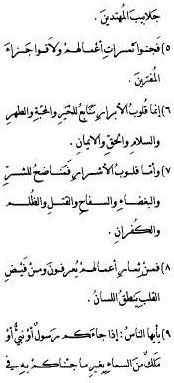 جلابيب المهتدين .
٥) فجنوا ثمرات أعمالهم ولاقوا جزاء
المفترين .
٦) إنما قلوب الأبرار منابع للخير والمحبة والطهر
والسلام والحق والايمان .
٧) وأما قلوب الأشرار فمناضح للشر
والبغضاء والسفاح والقتل والظلم
والكفران .
٨) فمن ثمار أعمالهم يعرفون ومن فيض
القلب ينطق اللسان .
٩) يأيها الناس : إذا جاءكم رسول أو نبي أو
ملك من السماء بغير ما جئناكم به في